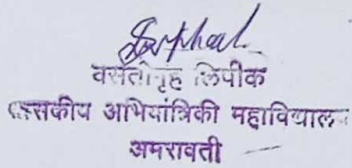 वसतीगृह लिपीक
शासकीय अभियांत्रिकी महाविद्यालय
अमरावती